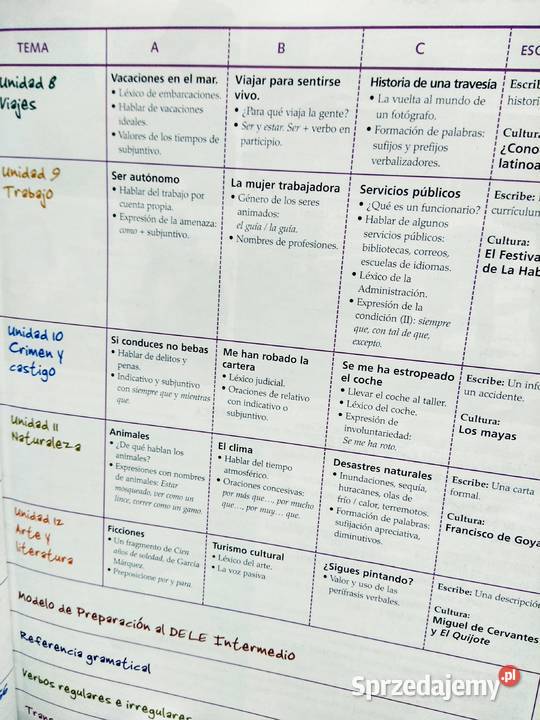 TEMA
A
B
C
Unidad 8
Viajes
Vacaciones en el mar.
• Léxico de embarcaciones.
• Hablar de vacaciones
ideales.
• Valores de los tiempos de
subjuntivo.
Viajar para sentirse
vivo.
• ¿Para qué viaja la gente?
• Ser y estar. Ser + verbo en
participio.
Historia de una travesía
• La vuelta al mundo de
un fotógrafo.
• Formación de palabras:
sufijos y prefijos
verbalizadores.
Cultura
¿Cono
latinoa
Unidad 9
Trabajo
Ser autónomo
• Hablar del trabajo por
cuenta propia.
• Expresión de la amenaza:
como + subjuntivo.
La mujer trabajadora
• Género de los seres
animados:
el guía / la guía.
• Nombres de profesiones.
Servicios públicos
• ¿Qué es un funcionario?
• Hablar de algunos
servicios públicos:
bibliotecas, correos,
escuelas de idiomas.
• Léxico de la
Administración.
• Expresión de la
condición (II): siempre
que, con tal de que,
excepto.
Escribe:
currículum
Cultura:
El Festiva
de La Hab
Unidad 10
Crimen y
castigo
Si conduces no bebas
• Hablar de delitos y
penas.
• Indicativo y subjuntivo
con siempre que y mientras
que.
Me han robado la
cartera
• Léxico judicial.
• Oraciones de relativo
con indicativo o
subjuntivo.
Se me ha estropeado
el coche
• Llevar el coche al taller.
• Léxico del coche.
• Expresión de
involuntariedad:
Se me ha roto.
Escribe: Un info
un accidente.
Cultura:
Los mayas
Unidad 11
Naturaleza
Animales
• ¿De qué hablan los
animales?
• Expresiones con nombres
de animales: Estar
mosqueado, ver como un
lince, correr como un gamo.
El clima
• Hablar del tiempo
atmosférico.
• Oraciones concesivas:
por más que..., por mucho
que..., por muy... que.
Desastres naturales
• Inundaciones, sequía,
huracanes, olas de
frío / calor, terremotos.
• Formación de palabras:
sufijación apreciativa,
diminutivos.
Escribe: Una carta
formal.
Cultura:
Francisco de Goya
Unidad 12
Arte y
literatura
Ficciones
• Un fragmento de Cien
años de soledad, de García
Márquez.
• Preposicione por y para.
Turismo cultural
• Léxico del arte.
• La voz pasiva
¿Sigues pintando?
• Valor y uso de las
perífrasis verbales.
Escribe: Una descripción
Cultura:
Miguel de Cervantes
y El Quijote
Modelo de Preparación al DELE Intermedio
Referencia gramatical
Verbos regulares e irregulares
Trans
Sprzedajemy.pl